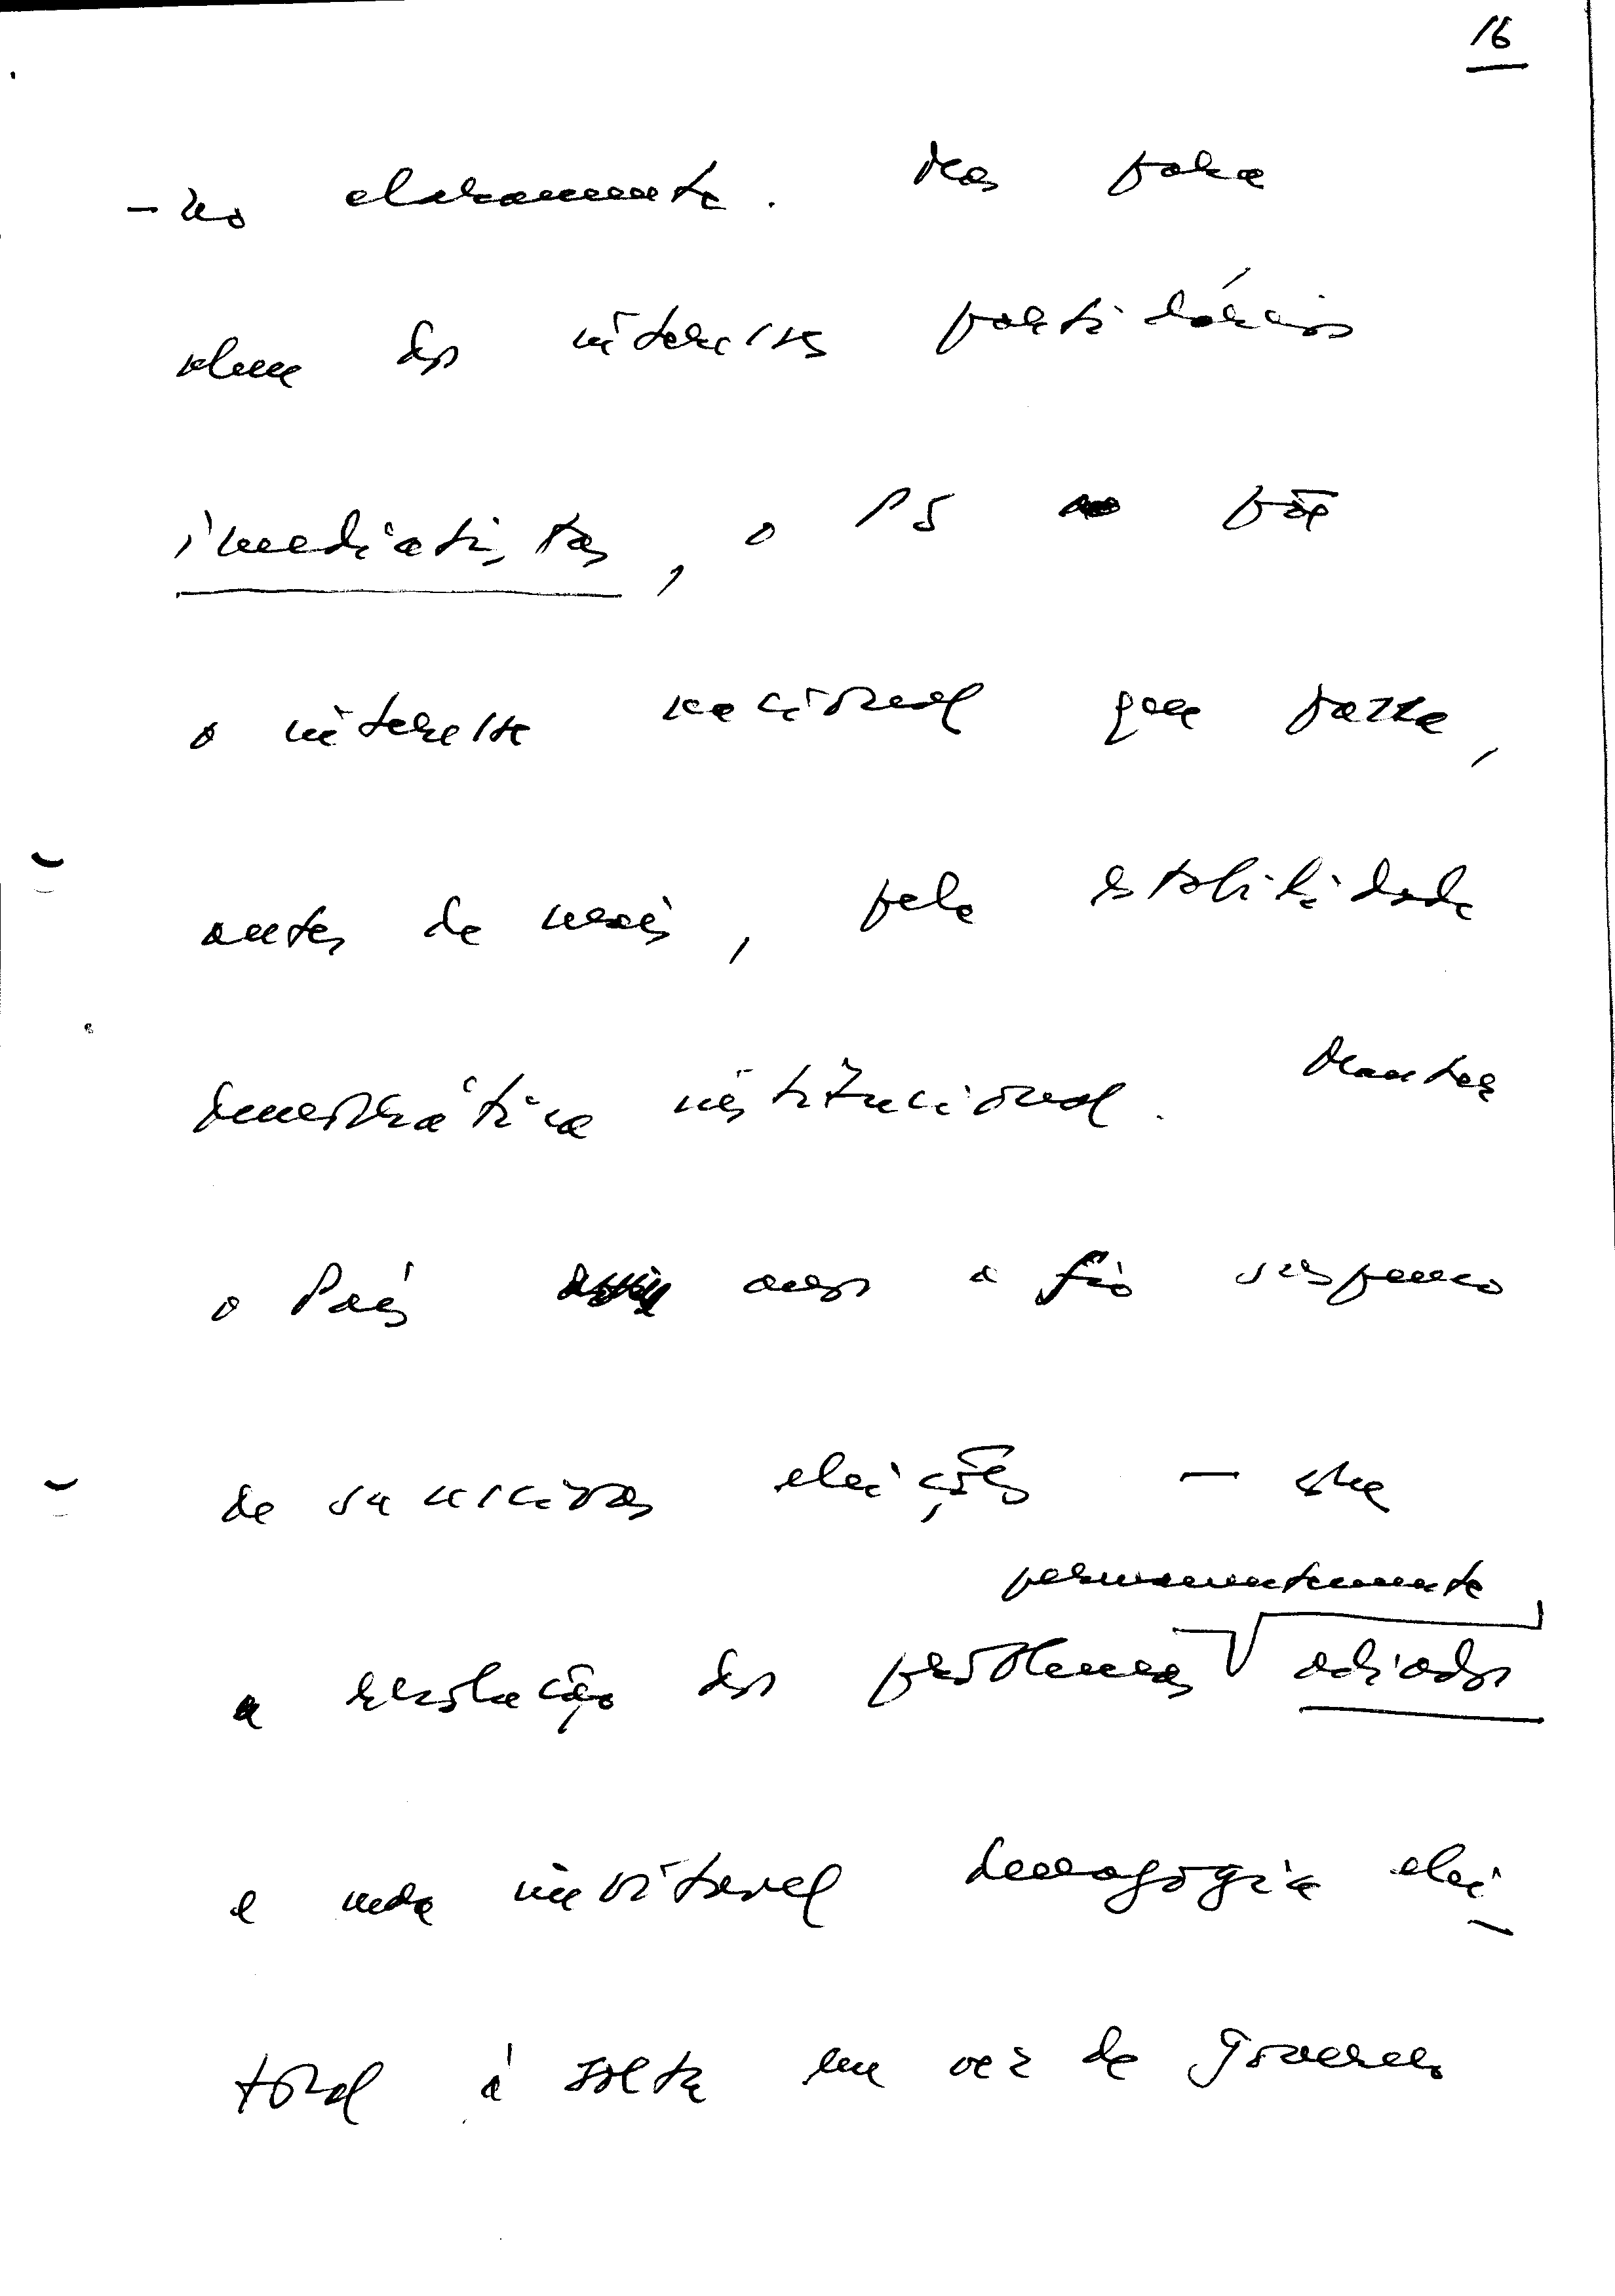 16
-no claramente. Mas para
além dos interesses partidários
imediatistas, o PS põe
o interesse nacional que passa,
antes de mais, pela estabilidade
democrática institucional. Manter
o País anos a fio suspenso
de sucessivas eleições — sem
permanentemente
a resolução dos problemas adiados
e uma inevitável demagogia elei-
toral à solta em vez de governo